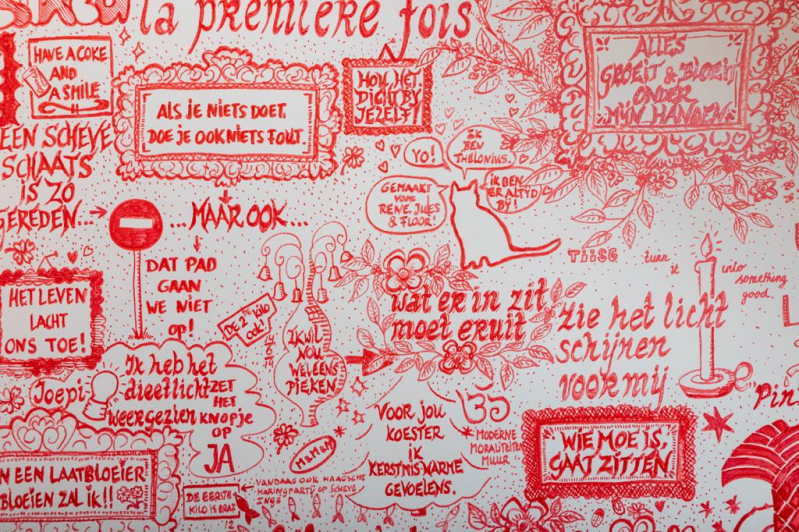 la première fois
HAVE A COKE
AND
A SMILE
ALS JE NIETS DOET,
DOE JE OOK NIETS FOUT.
HOU HET
DICHT BY
JEZELF!
ALLES
GROEIT & BLOEIT
ONDER
MIJN HANDEN
EEN SCHEVE
SCHAATS
IS ZO
GEREDEN...
...MAAR OOK...
DAT PAD
GAAN
WE NIET
OP!
YO!
IK
BEN
THELONIUS.
GEMAAKT
VOOR
RENE, JULES
& FLOOR!
IK BEN
ER ALTYD
BY!
HET LEVEN
LACHT
ONS TOE!
DE 2de KILO
OOK!
IK WIL
NOU
WEL EENS
PIEKEN
wat er in zit
moet eruit
turn
it
into
something
good
zie het licht
schijnen
voor mij
Ik heb het
dieetlicht
weer gezien
ZET
HET
KNOPJE
OP
JA
Joepi
VOOR JOU
KOESTER
IK
KERSTMIS-WARME
GEVOELENS.
MODERNE
MORALITEITEN
MUUR
WIE MOE IS,
GAAT ZITTEN
N EEN LAATBLOEIER
BLOEIEN ZAL IK!!
DE EERSTE
KILO IS ERAF
VANDAAG OOK HAAGSCHE
HARINGPARTY OP SCHEVE